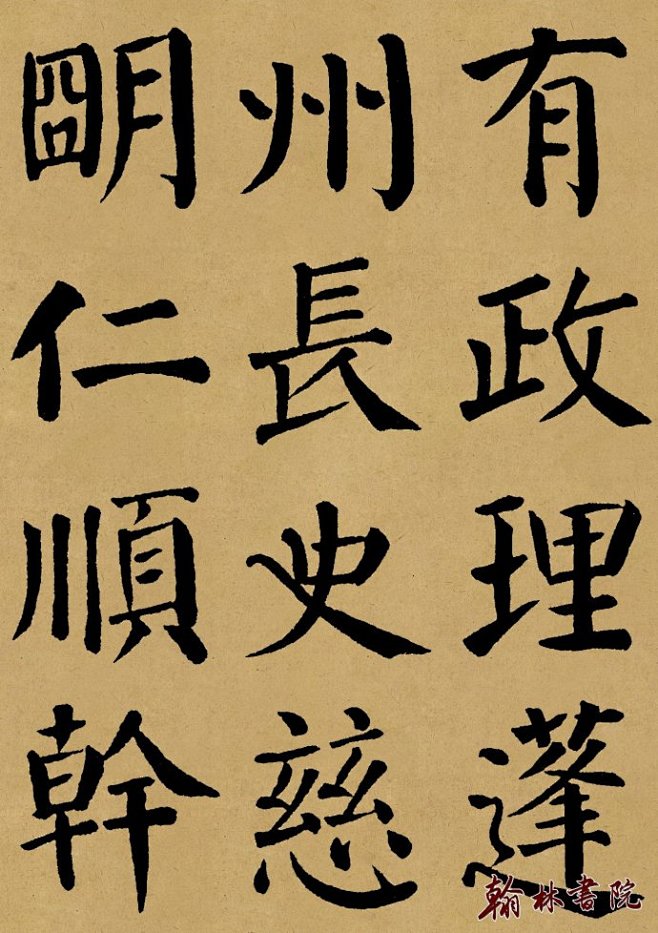 有政理蓬
州長史慈
明仁順幹
翰林書院